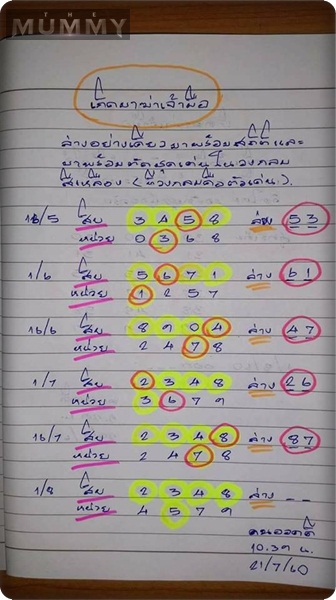 THE
MUMMY
เด็ดมาฆ่าเจ้ามือ
ล่างอย่างเดียวมาพร้อมสถิติและ
มาพร้อมตัดชุดเด่นในวงกลม
สีเหลือง (ที่วงกลมคือตัวเด่น).
16/5 สิบ 3 4 5 8 ล่าง 53
หน่วย 0 3 6 8
1/6 สิบ 5 6 7 1 ล่าง 61
หน่วย 1 2 5 7
16/6 สิบ 8 9 0 4 ล่าง 47
หน่วย 2 4 7 8
1/7 สิบ 2 3 4 8 ล่าง 26
หน่วย 3 6 7 9
16/7 สิบ 2 3 4 8 ล่าง 87
หน่วย 2 4 7 8
1/8 สิบ 2 3 4 8 ล่าง _ _
หน่วย 4 5 7 9
10.39 น.
21/7/60